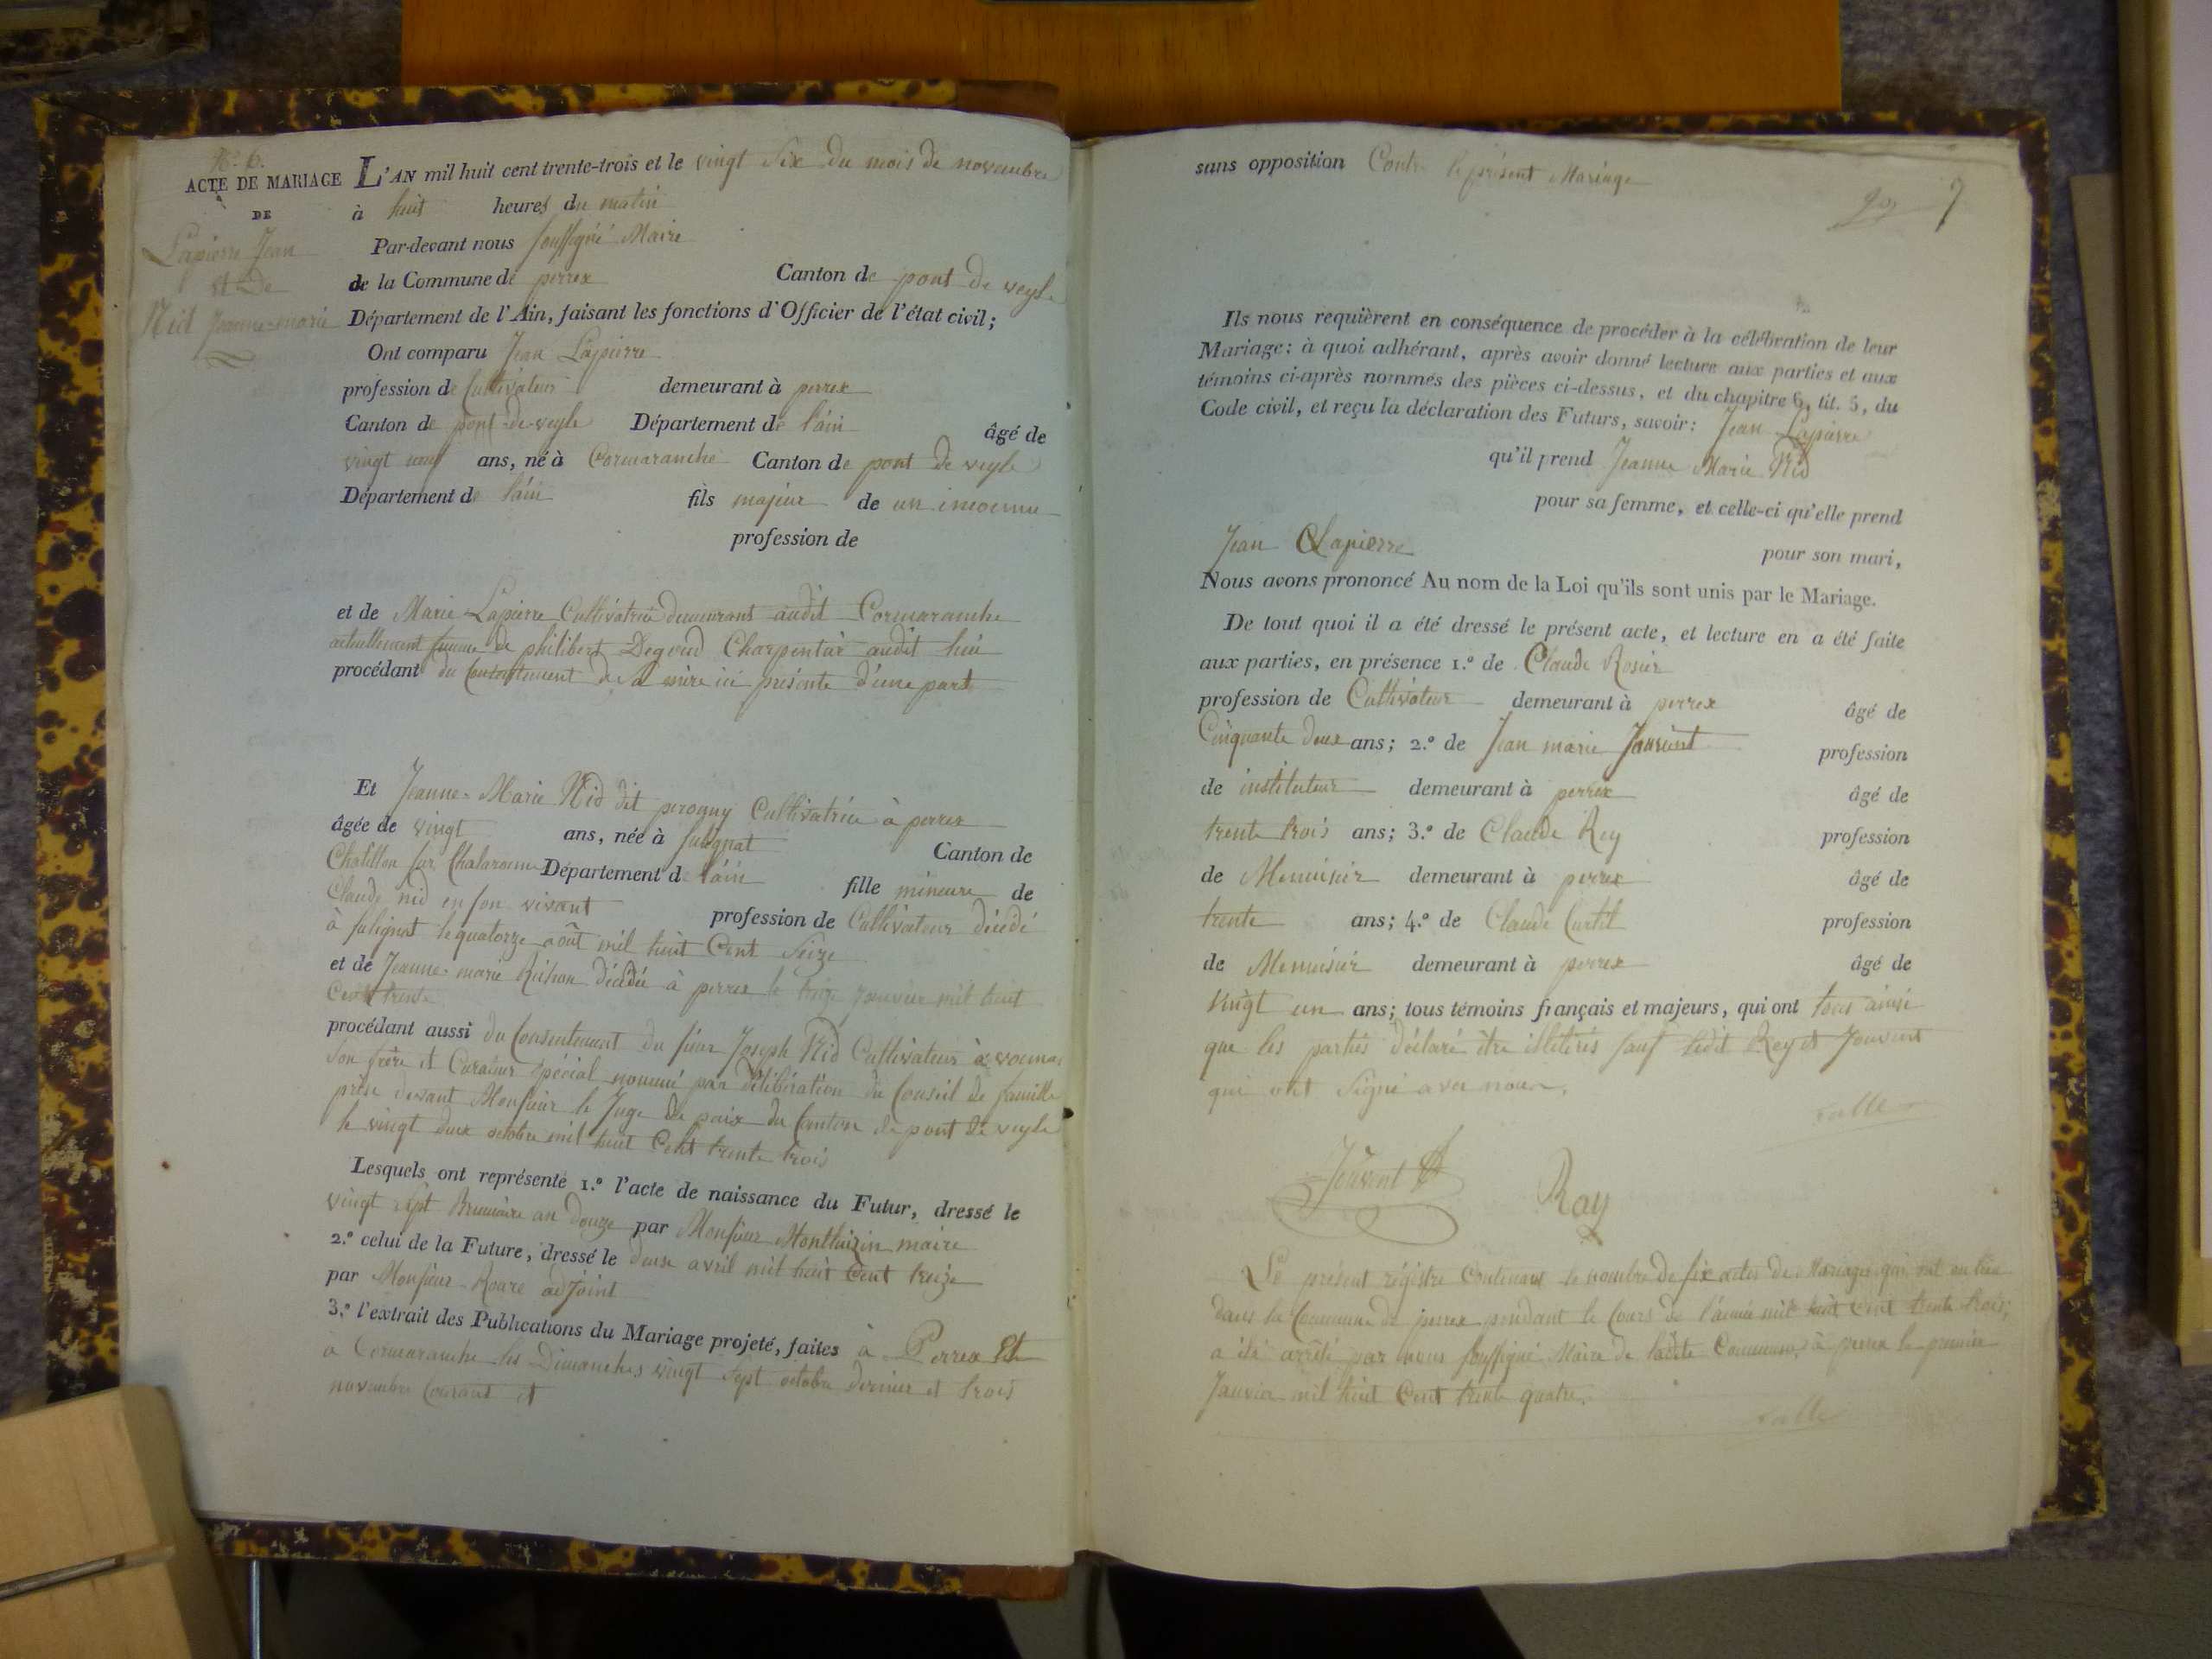 N.º 6.
ACTE DE MARIAGE
DE
Lapierre Jean
et De
Nid Jeanne-marie
L'AN mil huit cent trente-trois et le vingt six du mois de novembre
à huit heures du matin
Par-devant nous soussigné Maire
de la Commune de perrex Canton de pont de veyle
Département de l'Ain, faisant les fonctions d'Officier de l'état civil;
Ont comparu Jean Lapierre
profession de Cultivateur demeurant à perrex
Canton de pont-de-veyle Département de l'ain âgé de
vingt neuf ans, né à Cormaranche Canton de pont de veyle
Département de l'ain fils majeur de un inconnu
profession de
et de Marie Lapierre Cultivatrice demeurant audit Cormaranche
actuellement femme de philibert Degoud Charpentier audit lieu
procédant du Consentement de sa mère ici présente d'une part
Et Jeanne-Marie Nid dit perogny Cultivatrice à perrex
âgée de vingt ans, née à sulignat Canton de
Chatillon sur Chalaronne Département de l'ain fille mineure de
Claude nid en son vivant profession de Cultivateur décédé
à sulignat le quatorze août mil huit Cent seize
et de Jeanne-marie Richon décédée à perrex le treize janvier mil huit
Cent trente
procédant aussi du Consentement du sieur Joseph Nid Cultivateur à vonnas
son frère et Curateur spécial nommé par délibération du Conseil de famille
prise devant Monsieur le Juge de paix du Canton de pont de veyle
le vingt deux octobre mil huit Cent trente trois
Lesquels ont représenté 1.º l'acte de naissance du Futur, dressé le
vingt sept Brumaire an Douze par Monsieur Monthuizin maire
2.º celui de la Future, dressé le deux avril mil huit Cent treize
par Monsieur Roare adjoint
3.º l'extrait des Publications du Mariage projeté, faites à Perrex Et
à Cormaranche les Dimanches vingt sept octobre dernier et trois
novembre Courant et
sans opposition Contre le présent Mariage
7
Ils nous requièrent en conséquence de procéder à la célébration de leur
Mariage: à quoi adhérant, après avoir donné lecture aux parties et aux
témoins ci-après nommés des pièces ci-dessus, et du chapitre 6, tit. 5, du
Code civil, et reçu la déclaration des Futurs, savoir: Jean Lapierre
qu'il prend Jeanne Marie Nid
pour sa femme, et celle-ci qu'elle prend
Jean Lapierre pour son mari,
Nous avons prononcé Au nom de la Loi qu'ils sont unis par le Mariage.
De tout quoi il a été dressé le présent acte, et lecture en a été faite
aux parties, en présence 1.º de Claude Rosier
profession de Cultivateur demeurant à perrex âgé de
Cinquante deux ans; 2.º de Jean marie Jouvent profession
de instituteur demeurant à perrex âgé de
trente trois ans; 3.º de Claude Rey profession
de Menuisier demeurant à perrex âgé de
trente ans; 4.º de Claude Curtil profession
de Menuisier demeurant à perrex âgé de
vingt un ans; tous témoins français et majeurs, qui ont tous ainsi
que les parties déclaré être illetirés sauf ledit Rey et Jouvent
qui ont signé avec nous.
Jouvent
Ray
Le présent régistre Contenant le nombre de six actes de Mariages qui ont eu lieu
dans la Commune de perrex pendant le Cours de l'année mil huit cent trente trois;
a été arrêté par nous soussigné Maire de ladite Commune, à perrex le premier
Janvier mil huit Cent trente quatre.